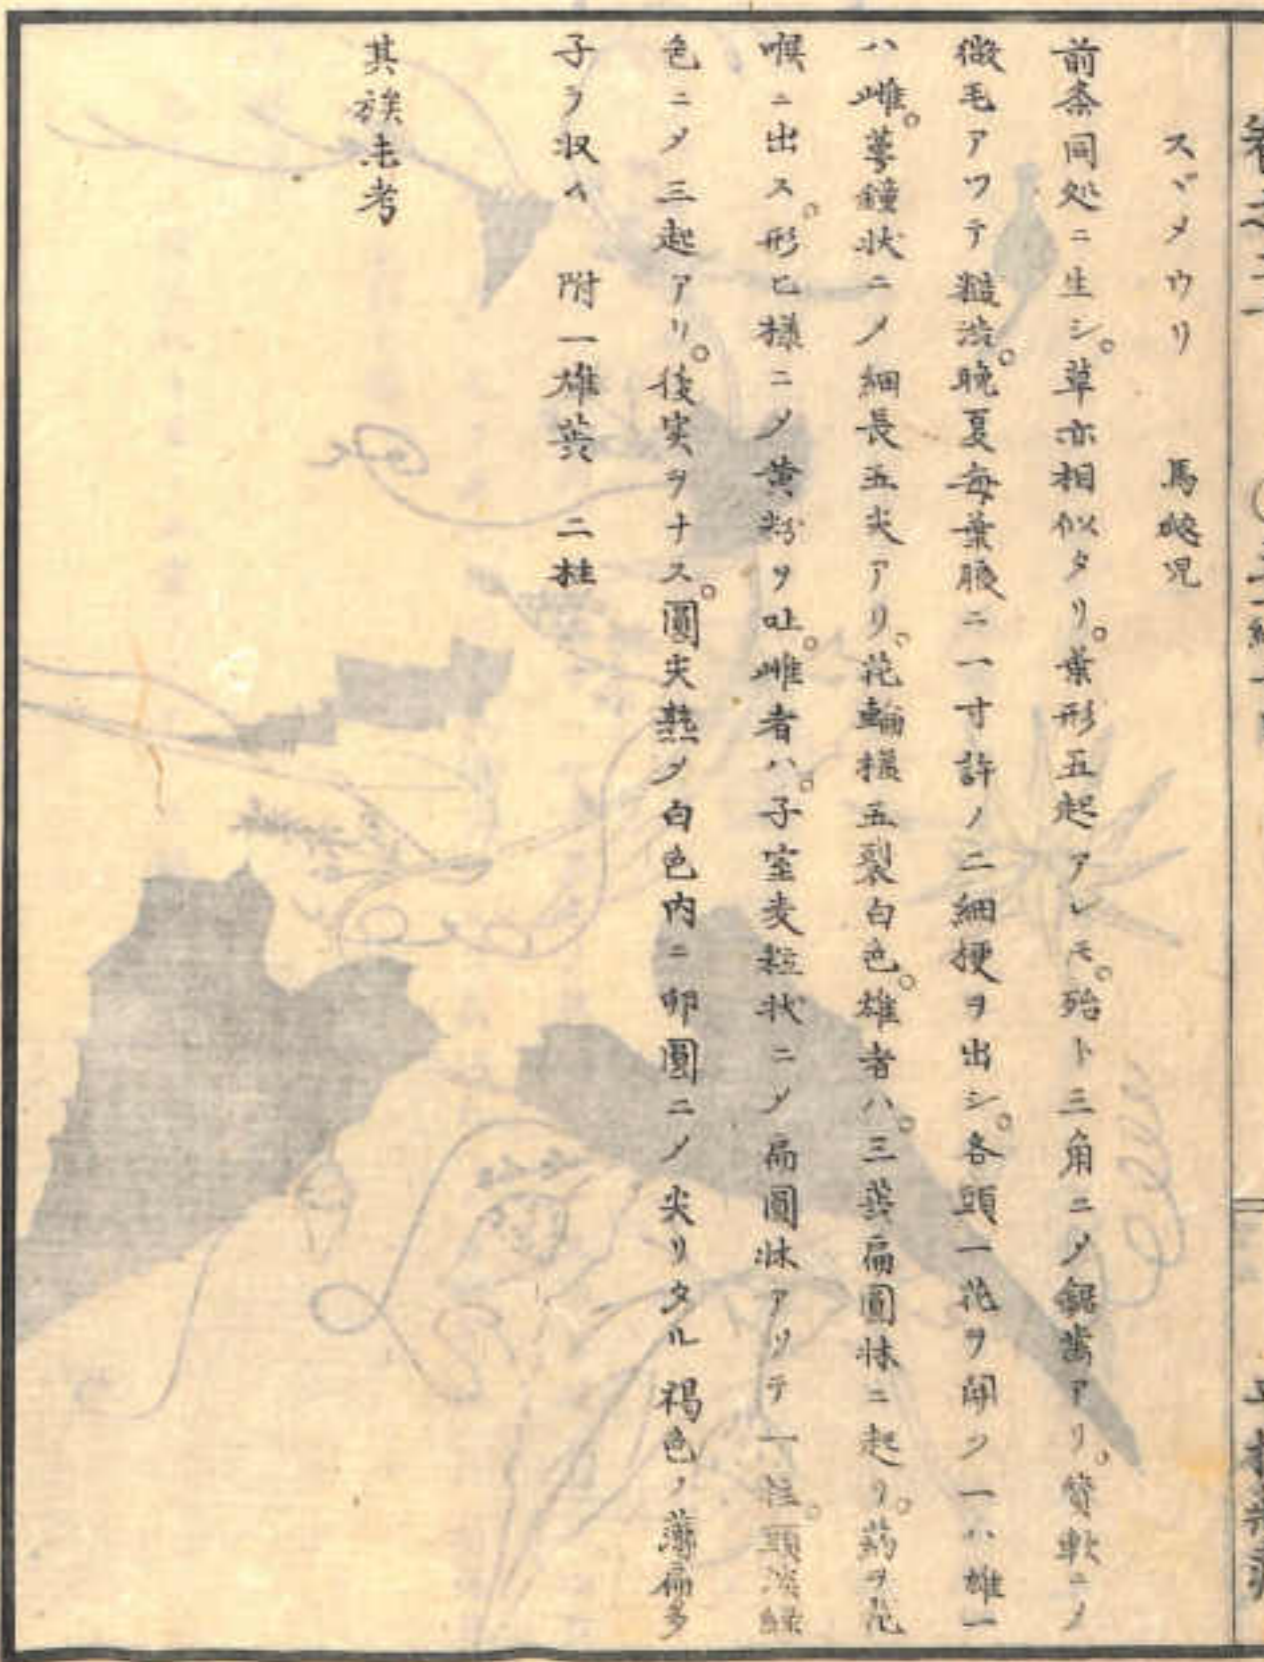 スヾメウリ　馬㼎児
前条同処ニ生シ。草亦相似タリ。葉形五起アレ𪜈。殆ト三角ニメ鋸歯アリ。質軟ニノ
微毛アツテ糙渋。晩夏毎葉腋ニ一寸許ノ二細梗ヲ出シ。各頭一花ヲ開ク一ハ雄一
ハ雌。萼鐘状ニノ細長五尖アリ。花輪様五裂白色。雄者ハ。三蕊扁圓牀ニ起リ。葯ヲ花
喉ニ出ス。形匕様ニノ黄粉ヲ吐。雌者ハ。子室麦粒状ニメ扁圓牀アリテ一柱。頭淡緑
色ニメ三起アリ。後実ヲナス。圓尖熟メ白色内ニ卵圓ニノ尖リタル褐色ノ薄扁多
子ヲ収ム　附一雄蕊　二柱
其族未考